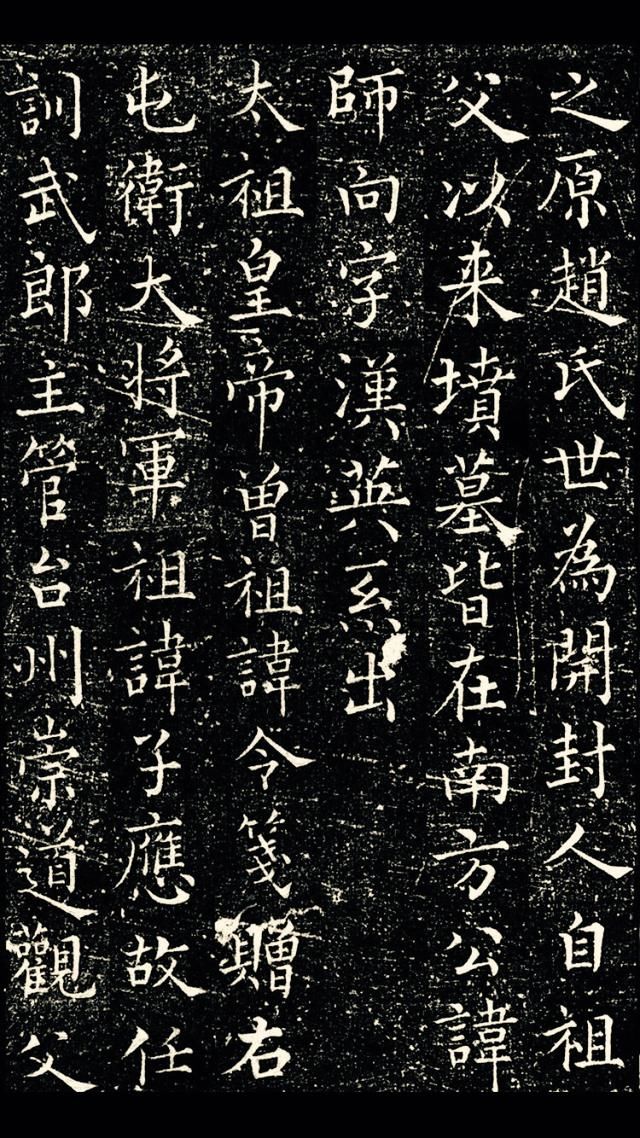 之原趙氏世為開封人自祖
父以来墳墓皆在南方公諱
師向字漢英系出
太祖皇帝曾祖諱令箋贈右
屯衛大將軍祖諱子應故任
訓武郎主管台州崇道觀父